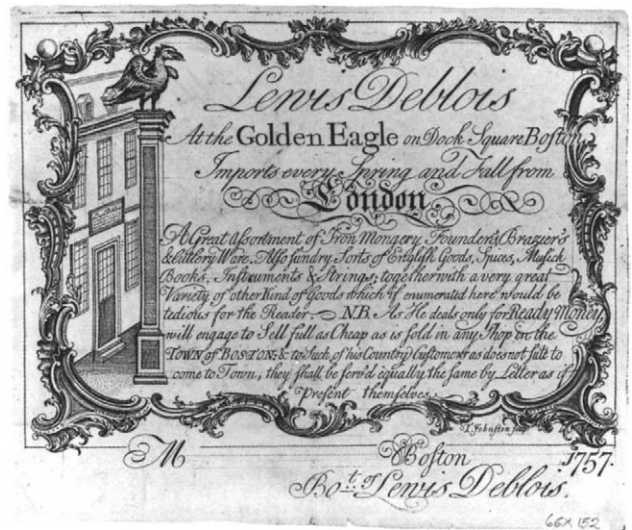 Lewis Deblois
At the Golden Eagle on Dock Square Boſton,
Imports every Spring and Fall from
London,
A Great Aſsortment of Iron Mongery, Founders, Brazier's
& Cutlery Ware. Alſo ſundry Sorts of Engliſh Goods, Spices, Muſick
Books, Inſtruments & Strings; together with a very great
Variety of other Kind of Goods which if enumerated here would be
tedious for the Reader. N.B. As He deals only for Ready Money
will engage to Sell full as Cheap as is ſold in any Shop in the
TOWN of BOSTON: & to Such of his Country Cuſtomers as does not ſuite to
come to Town, they ſhall be ſerv'd equally the ſame by Letter as if
Preſent themſelves.
T. Johnſton ſculp
M Boſton 1757.
Bo.t of Lewis Deblois.
66x152